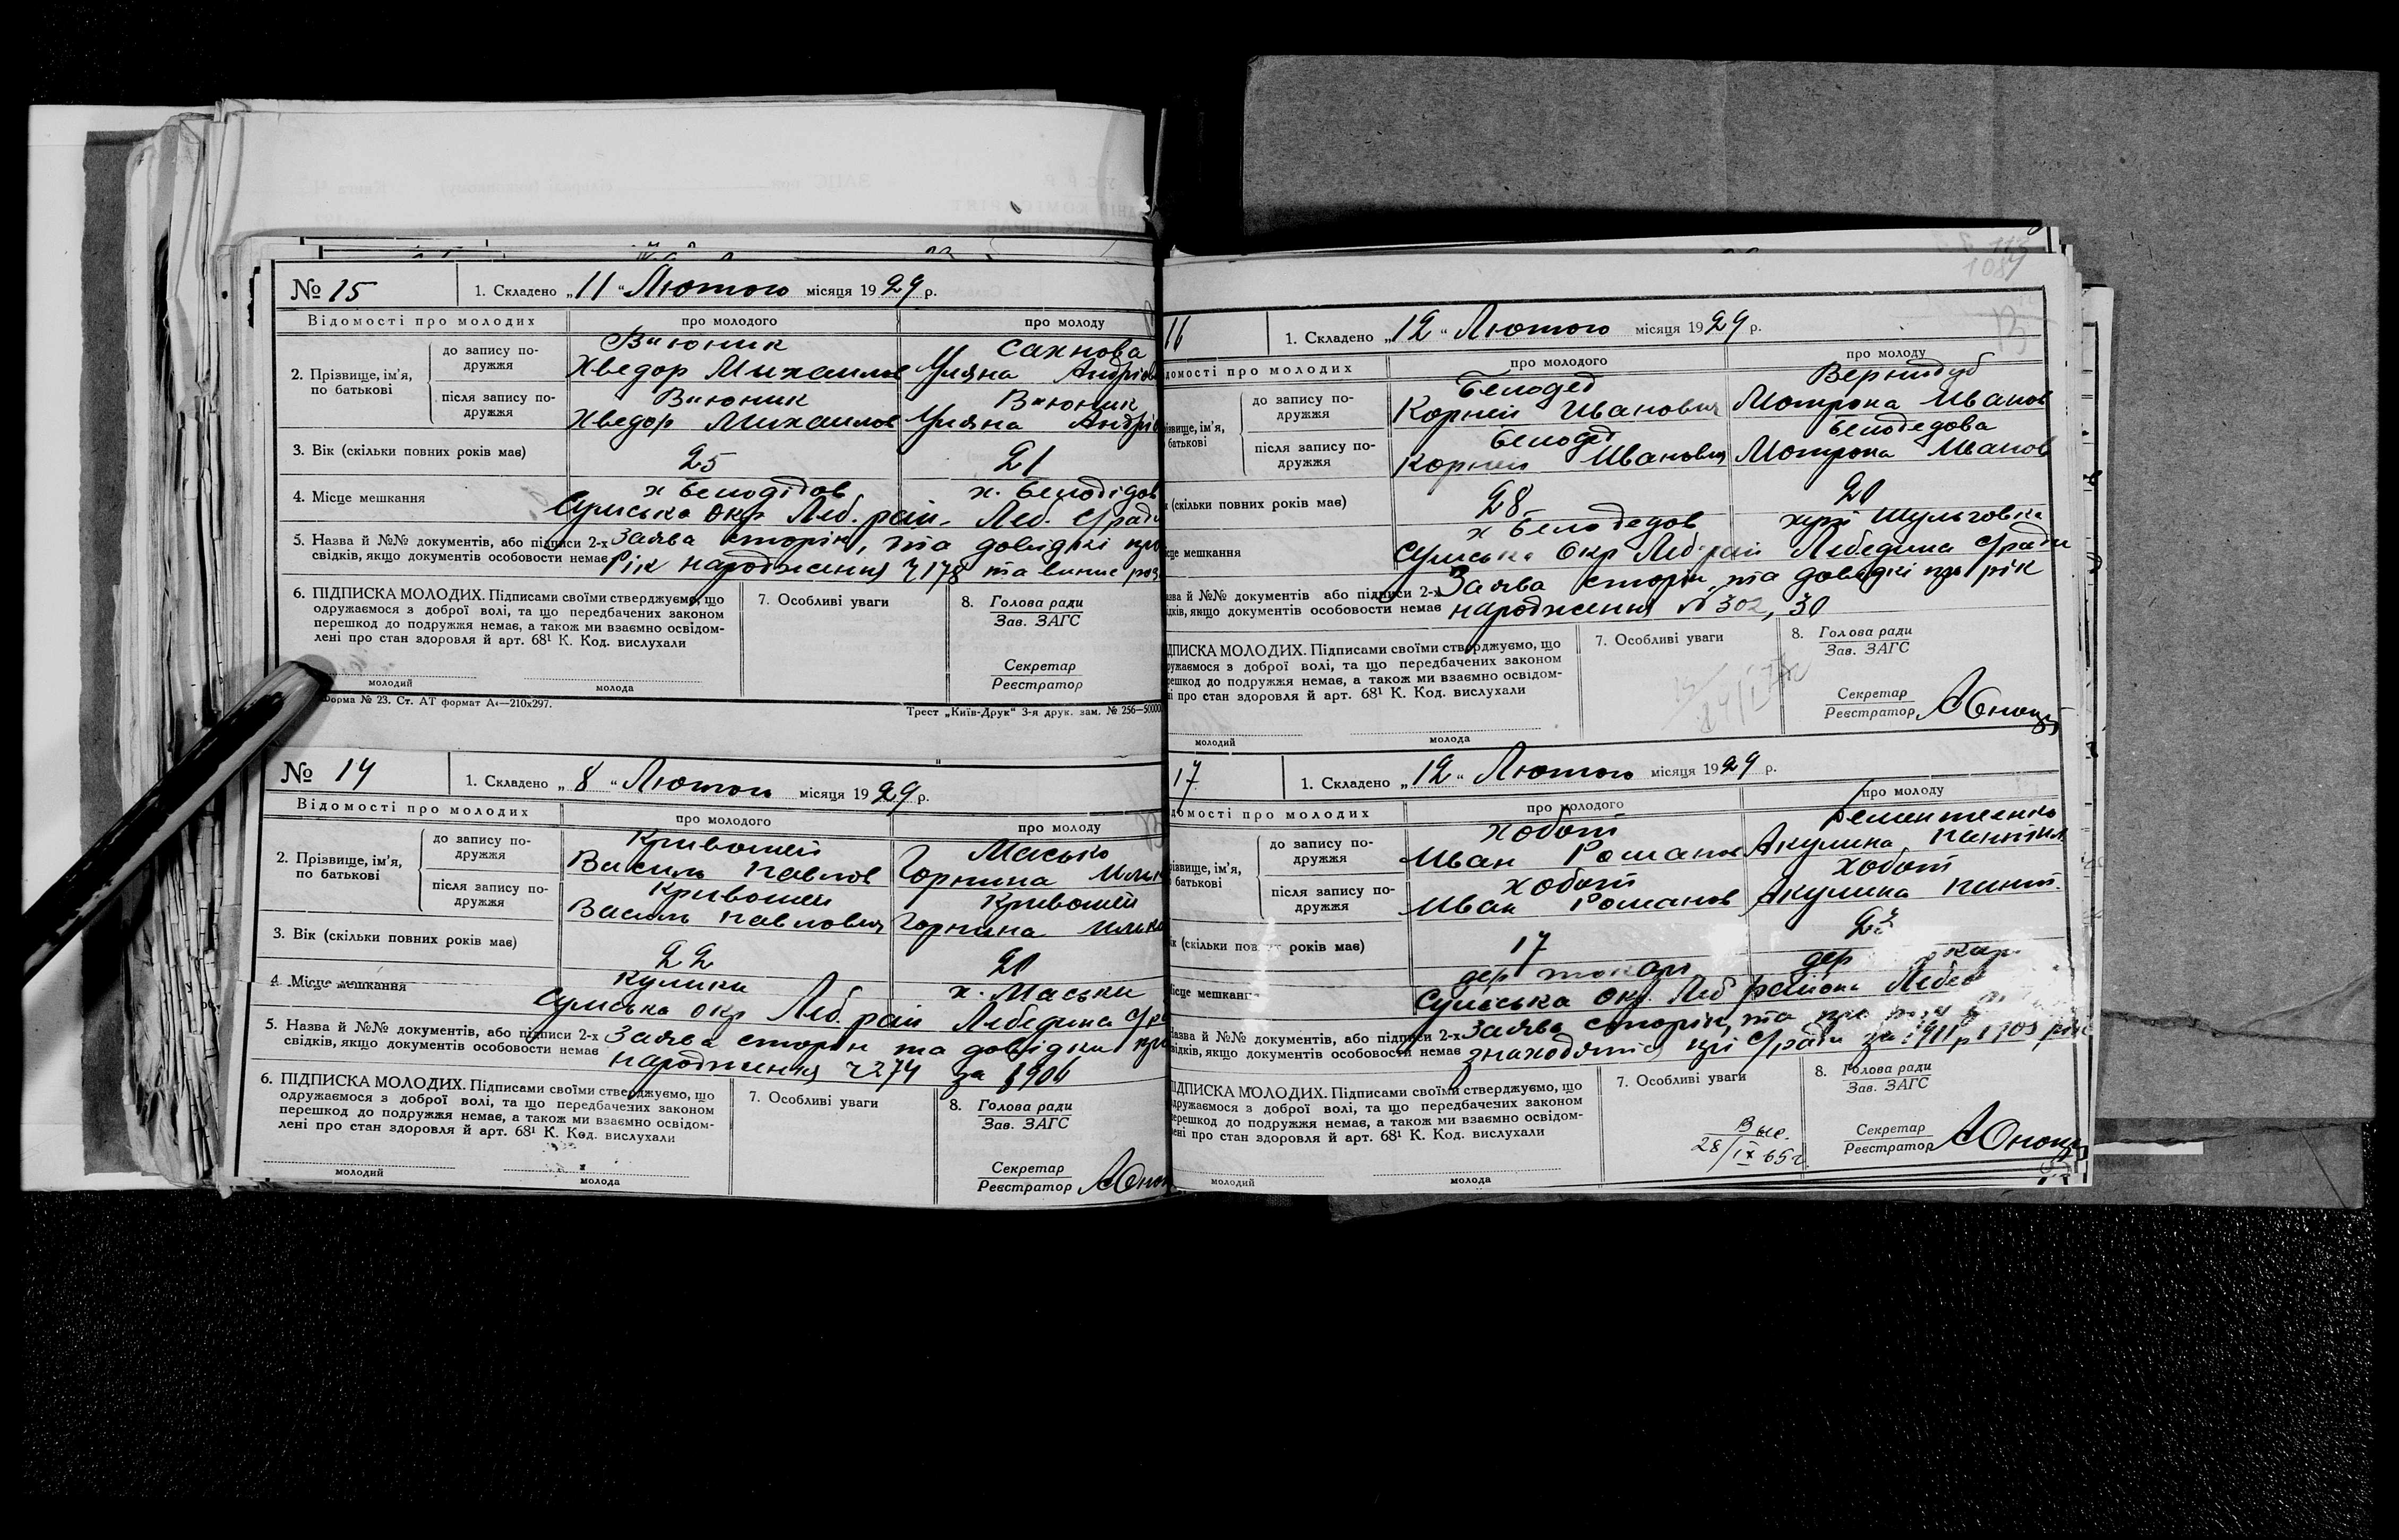 № 15
1. Складено „11“ Лютого місяця 1929 р.
Відомості про молодих
про молодого
про молоду
2. Прізвище, ім'я, по батькові
до запису по-
дружжя
Вьюник
Хведор Михаилов
Сахнова
Уляна Андріов
після запису по-
дружжя
Вьюник
Хведор Михаилов
Вьюник
Уляна Андрі
3. Вік (скільки повних років має)
25
21
4. Місце мешкання
х Белодідов
х. Белодідов
Сумська Окр Леб. рай. Леб. с/ради
5. Назва й №№ документів, або підписи 2-х
свідків, якщо документів особовости немає
Заява сторін, та довідкі про
Рік народження 178 та випис роз
6. ПІДПИСКА МОЛОДИХ. Підписами своїми стверджуємо, що
одружаємося з доброї волі, та що передбачених законом
перешкод до подружжя немає, а також ми взаємно освідом-
лені про стан здоровля й арт. 68¹ К. Код. вислухали
молодий
молода
7. Особливі уваги
8. Голова ради
Зав. ЗАГС
Секретар
Реєстратор
Форма № 23. Ст. АТ формат А4—210х297.
Трест „Київ-Друк“ 3-я друк. зам. № 256—50000
№ 14
1. Складено „8“ Лютого місяця 1929 р.
Відомості про молодих
про молодого
про молоду
2. Прізвище, ім'я,
по батькові
до запису по-
дружжя
Кривошей
Василь Павлов
Масько
Горпина Ильк
після запису по-
дружжя
Кривошей
Василь Павлович
Кривошей
Горпина Илько
3. Вік (скільки повних років має)
22
20
4. Місце мешкання
Кулики
х. Маськи
Сумська окр Леб. рай Лебедина с/ра
5. Назва й №№ документів, або підписи 2-х
свідків, якщо документів особовости немає
Заява сторін та довідки про
народження 274 за
6. ПІДПИСКА МОЛОДИХ. Підписами своїми стверджуємо, що
одружаємося з доброї волі, та що передбачених законом
перешкод до подружжя немає, а також ми взаємно освідом-
лені про стан здоровля й арт. 68¹ К. Код. вислухали
молодий
молода
7. Особливі уваги
8. Голова ради
Зав. ЗАГС
Секретар
Реєстратор
16
1. Складено „12“ Лютого місяця 1929 р.
домості про молодих
про молодого
про молоду
різвище, ім'я,
батькові
до запису по-
дружжя
Белодед
Корней Иванович
Вернидуб
Мотрона Иванов
після запису по-
дружжя
Белодед
Корней Иванович
Белодедова
Мотрона Иванов
(скільки повних років має)
28
20
сце мешкання
х Белодедов
Шульговка
Сумська Окр Леб рай Лебедина с/ради
азва й №№ документів або підписи 2-х
ідків, якщо документів особовости немає
Заява сторін, та довідкі про рік
народження № 302, 30
ДПИСКА МОЛОДИХ. Підписами своїми стверджуємо, що
ружаємося з доброї волі, та що передбачених законом
решкод до подружжя немає, а також ми взаємно освідом-
і про стан здоровля й арт. 68¹ К. Код. вислухали
молодий
молода
7. Особливі уваги
8. Голова ради
Зав. ЗАГС
Секретар
Реєстратор
17
1. Складено „12“ Лютого місяця 1929 р.
домості про молодих
про молодого
про молоду
різвище, ім'я,
батькові
до запису по-
дружжя
Хобот
Иван Романов
Дементеенко
Акулина
після запису по-
дружжя
Хобот
Иван Романов
Хобот
Акулина
ік (скільки повних років має)
17
23
ісце мешкання
дер токари
дер
Сумська окр. Леб района Лебед
Назва й №№ документів, або підписи 2-х
відків, якщо документів особовости немає
Заява сторін, та
знаходятся при с/раді за 1911 р
ПІДПИСКА МОЛОДИХ. Підписами своїми стверджуємо, що
дружаємося з доброї волі, та що передбачених законом
ерешкод до подружжя немає, а також ми взаємно освідом-
ені про стан здоровля й арт. 68¹ К. Код. вислухали
молодий
молода
7. Особливі уваги
28/IX 65г.
8. Голова ради
Зав. ЗАГС
Секретар
Реєстратор